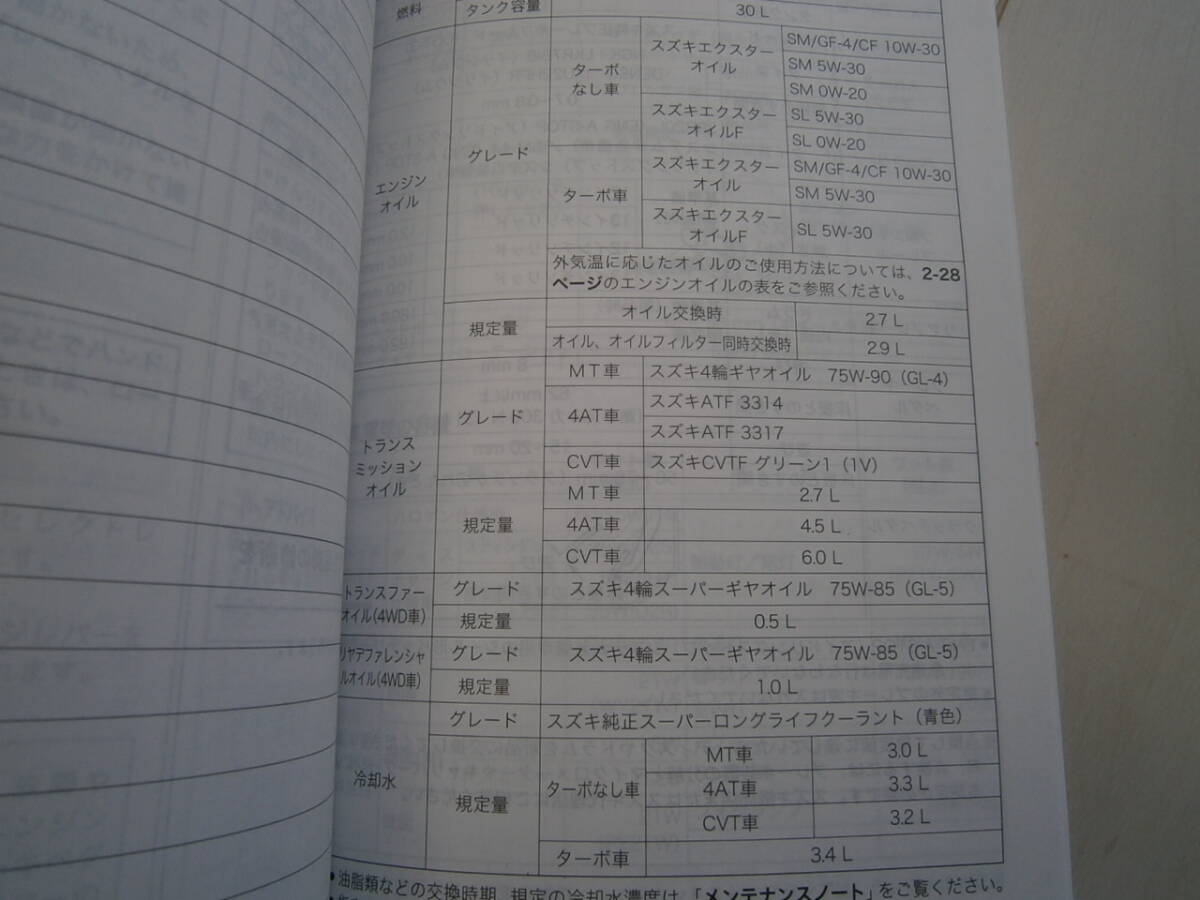 燃料 タンク容量 30 L
エンジンオイル グレード ターボなし車 スズキエクスターオイル SM/GF-4/CF 10W-30
SM 5W-30
SM 0W-20
スズキエクスターオイルF SL 5W-30
SL 0W-20
ターボ車 スズキエクスターオイル SM/GF-4/CF 10W-30
SM 5W-30
スズキエクスターオイルF SL 5W-30
外気温に応じたオイルのご使用方法については、2-28
ページのエンジンオイルの表をご参照ください。
規定量 オイル交換時 2.7 L
オイル、オイルフィルター同時交換時 2.9 L
トランスミッションオイル グレード MT車 スズキ4輪ギヤオイル 75W-90（GL-4）
4AT車 スズキATF 3314
スズキATF 3317
CVT車 スズキCVTF グリーン1（1V）
規定量 MT車 2.7 L
4AT車 4.5 L
CVT車 6.0 L
トランスファーオイル(4WD車) グレード スズキ4輪スーパーギヤオイル 75W-85（GL-5）
規定量 0.5 L
リヤデファレンシャルオイル(4WD車) グレード スズキ4輪スーパーギヤオイル 75W-85（GL-5）
規定量 1.0 L
冷却水 グレード スズキ純正スーパーロングライフクーラント（青色）
規定量 ターボなし車 MT車 3.0 L
4AT車 3.3 L
CVT車 3.2 L
ターボ車 3.4 L
●油脂類などの交換時期、規定の冷却水濃度は、「メンテナンスノート」をご覧ください。